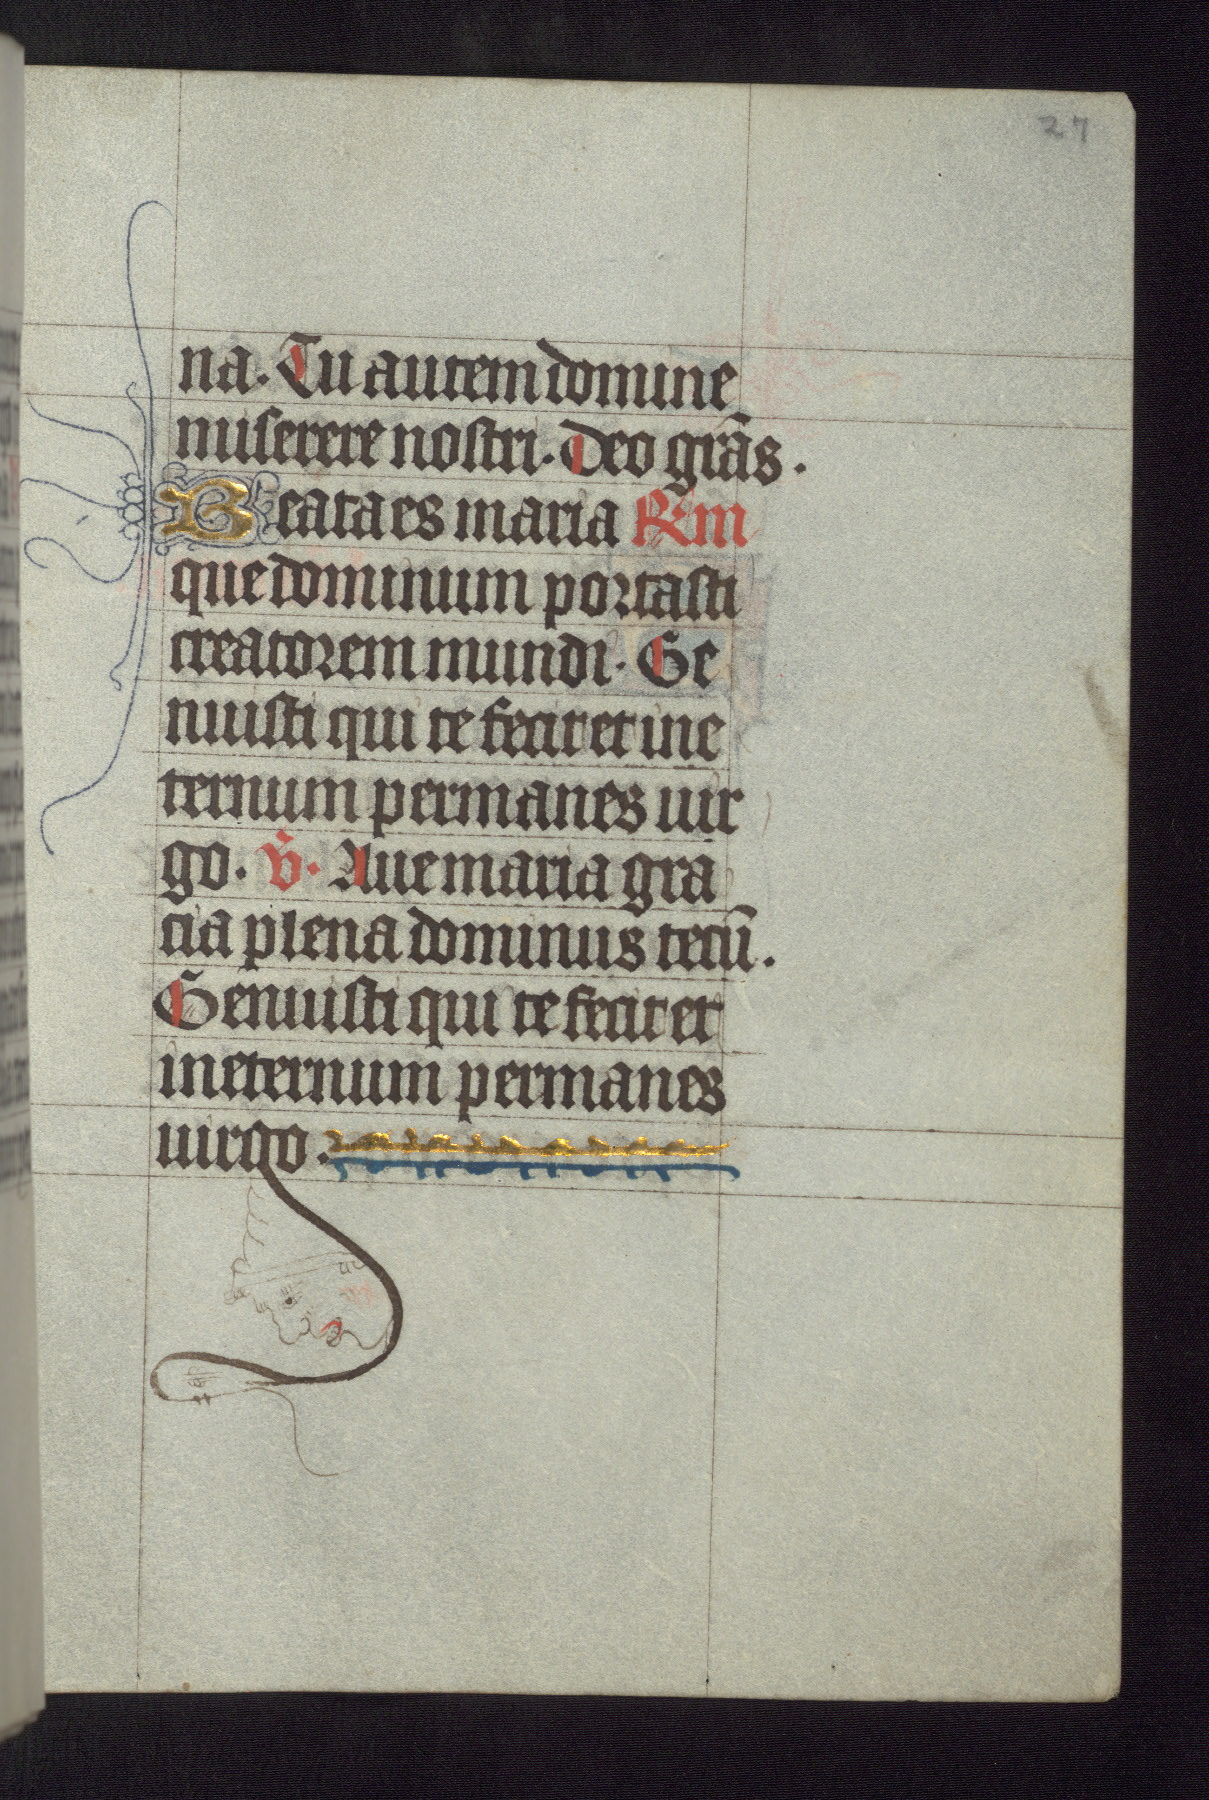 27
na. Tu autem domine
miserere nostri. Deo grās.
Beata es maria R̃m
que dominum portasti
creatorem mundi. Ge
nuisti qui te fecit et ine
ternum permanes uir
go. v̄. Aue maria gra
cia plena dominus tecū.
Genuisti qui te fecit et
ineternum permanes
uirgo.